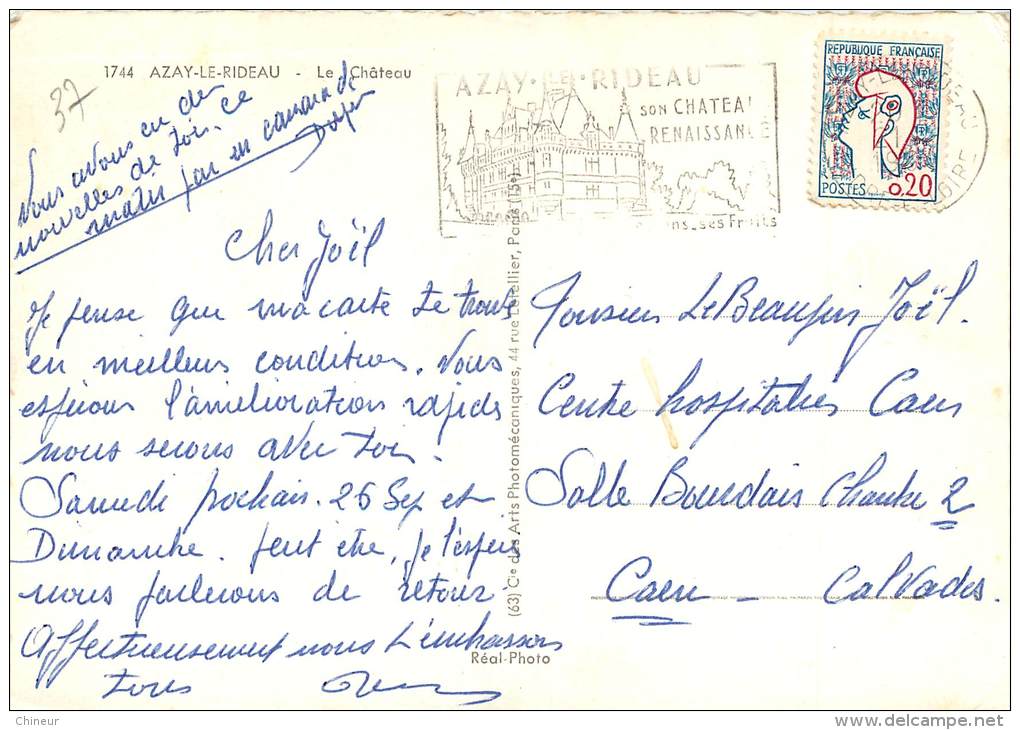 37
1744 AZAY-LE-RIDEAU - Le Château
Nous avons eu des
nouvelles de toi. ce
matin par un camarade
Cher Joël
Je pense que ma carte te trouve
en meilleur condition. Nous
espérons l'amélioration rapide
nous serons avec toi.
Samedi prochain. 26 Sep et
Dimanche. Peut être, je l'espère
nous parlerons de retour.
Affectueusement nous t'embrassons
tous
Réal-Photo
(63) Cie des Arts Photomécaniques, 44 rue Letellier, Paris (15e)
AZAY-LE-RIDEAU
SON CHATEAU
RENAISSANCE
ses Fruits
REPUBLIQUE FRANÇAISE
POSTES 0,20
Monsieur LeBeaupin Joël.
Centre hospitalier Caen
Salle Bourdais Chambre 2
Caen - Calvados.
Chineur
delcampe.net